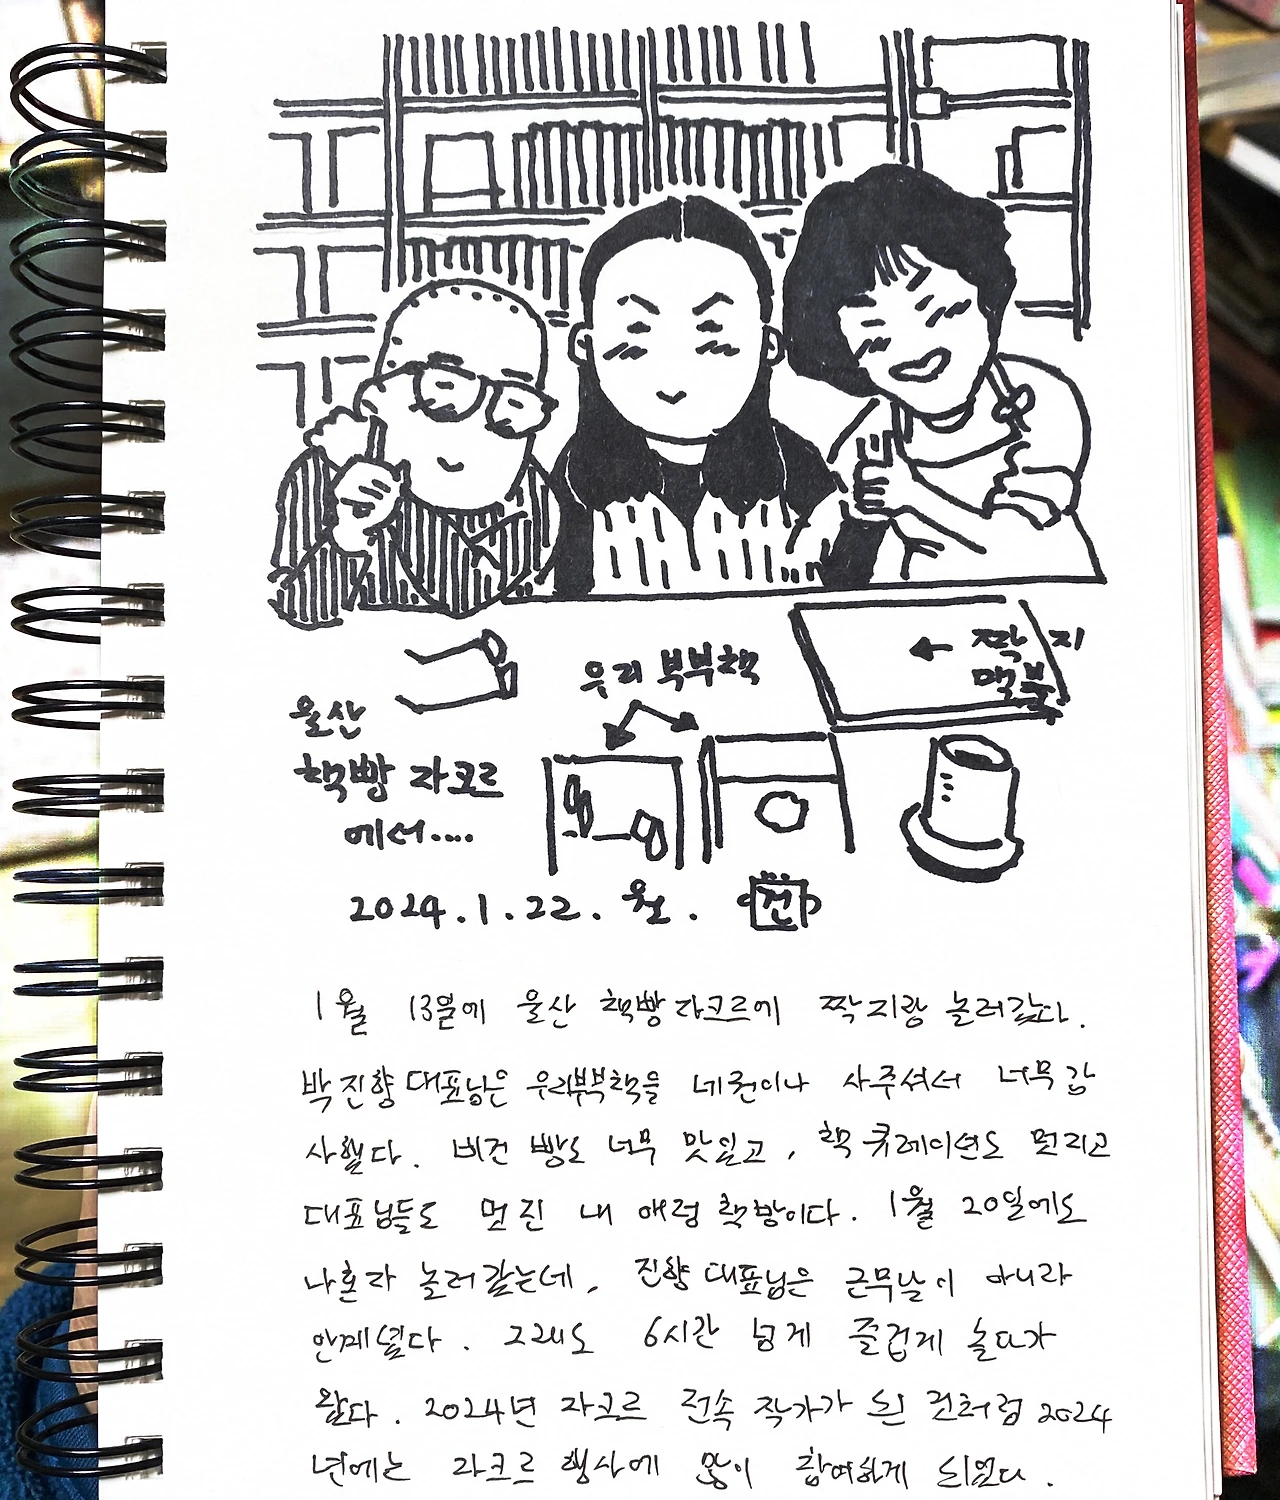 우리 부부책
← 짝지
맥북
울산
책빵 자크르
에서....
2024.1.22. 월. 건
1월 13일에 울산 책빵자크르에 짝지랑 놀러갔다.
박진향 대표님은 우리부부책을 네권이나 사주셔서 너무 감
사했다. 비건 빵도 너무 맛있고, 책 큐레이션도 멋지고
대표님들도 멋진 내 애정 책방이다. 1월 20일에도
나혼자 놀러갔는데, 진향 대표님은 근무날이 아니라
안계셨다. 그래도 6시간 넘게 즐겁게 놀다가
왔다. 2024년 자크르 전속 작가가 된 것처럼 2024
년에는 자크르 행사에 많이 참여하게 되었다.